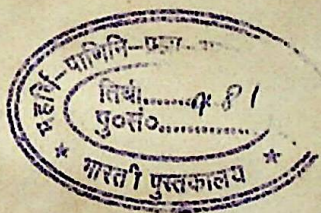 महर्षि-पाणिनि-
तिथी..........481
पु०सं०..............
* भारती पुस्तकालय *